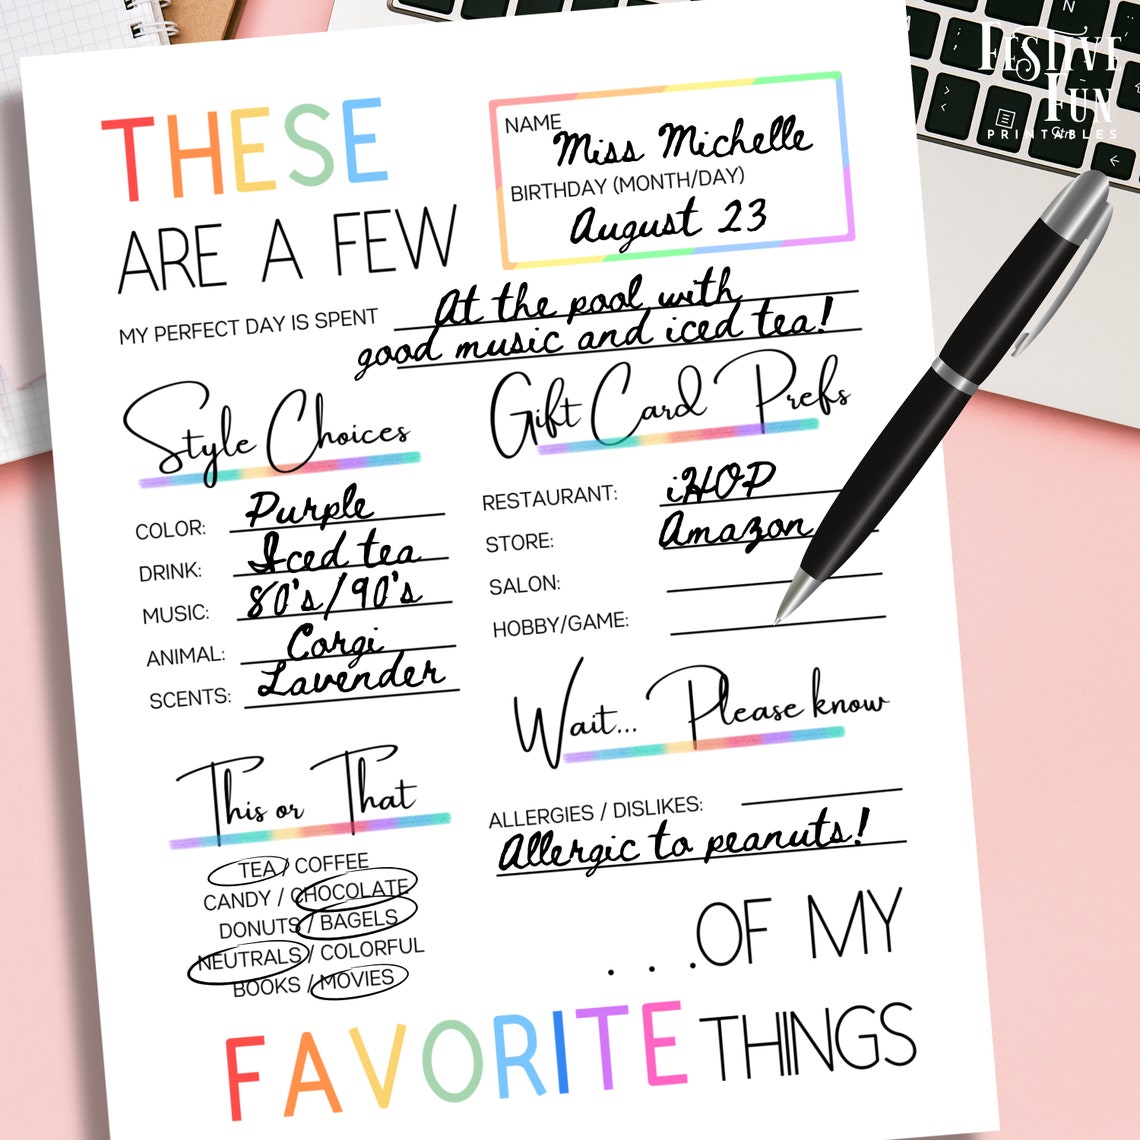 FESTIVE
FUN
PRINTABLES
THESE
ARE A FEW
NAME
Miss Michelle
BIRTHDAY (MONTH/DAY)
August 23
MY PERFECT DAY IS SPENT At the pool with
good music and iced tea!
Style Choices
COLOR: Purple
DRINK: Iced tea
MUSIC: 80's/90's
ANIMAL: Corgi
SCENTS: Lavender
Gift Card Prefs
RESTAURANT: iHOP
STORE: Amazon
SALON:
HOBBY/GAME:
Wait... Please know
ALLERGIES / DISLIKES:
Allergic to peanuts!
This or That
TEA / COFFEE
CANDY / CHOCOLATE
DONUTS / BAGELS
NEUTRALS / COLORFUL
BOOKS / MOVIES
...OF MY
FAVORITE THINGS